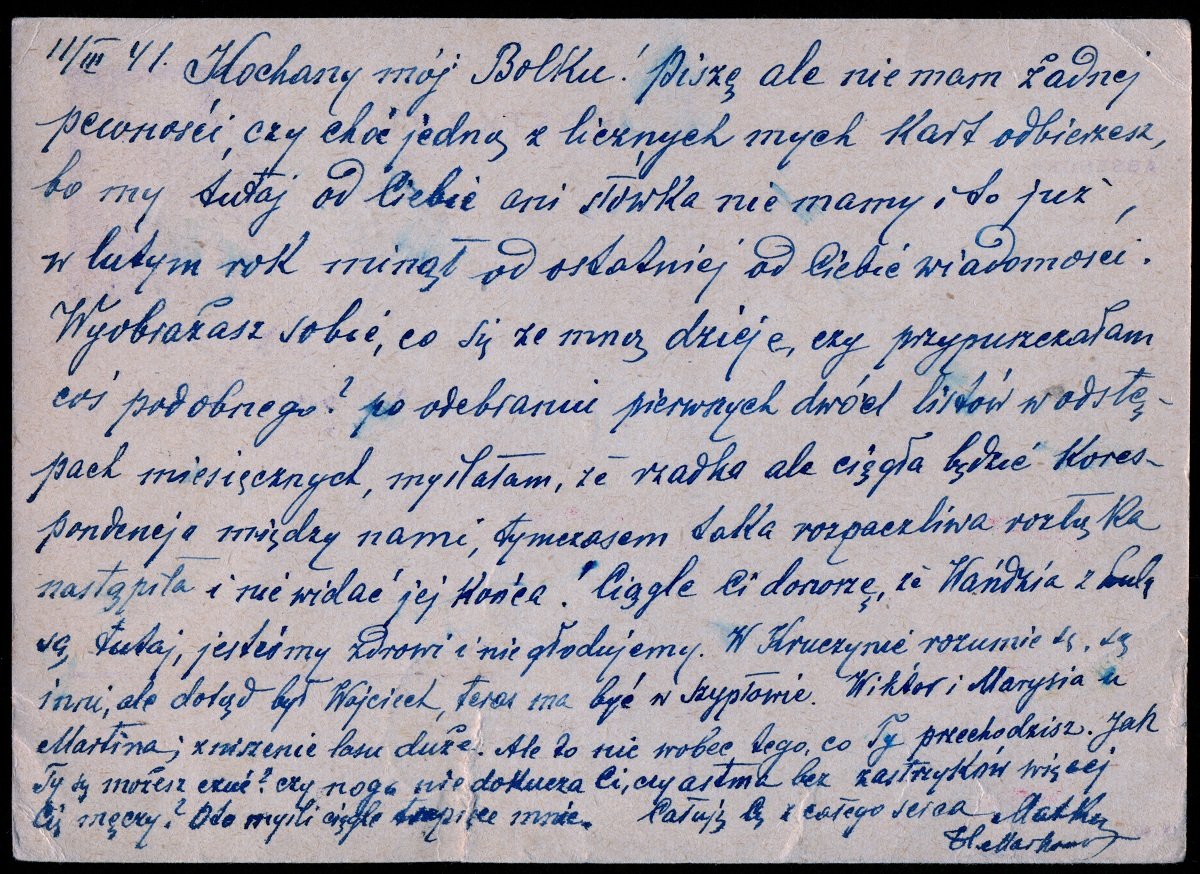 11/III 41. Kochany mój Bolku! Piszę ale nie mam żadnej
pewności, czy choć jedną z licznych mych kart odbierzesz,
bo my tutaj od Ciebie ani słówka nie mamy i to już,
w lutym rok minął od ostatniej od Ciebie wiadomości.
Wyobrażasz sobie, co się ze mną dzieje, czy przypuszczałam
coś podobnego? po odebraniu pierwszych dwóch listów w odstę-
pach miesięcznych, myślałam, że rzadka ale ciągła będzie kores-
pondencja między nami, tymczasem taka rozpaczliwa rozłąka
nastąpiła i nie widać jej końca! Ciągle Ci donoszę, że Wańdzia z
są tutaj, jesteśmy zdrowi i nie głodujemy. W Kruczynie rozumie się, są
inni, ale dotąd był Wojciech, teraz ma być w Szypłowie. Wiktor i Marysia u
Martina; zniszczenie lasu duże. Ale to nic wobec tego, co Ty przechodzisz. Jak
Ty się możesz czuć? czy noga nie dokucza Ci, czy astma bez zastrzyków więcej
Cię męczy? Oto myśli ciągle trapiące mnie. Całuję Cię z całego serca Matka